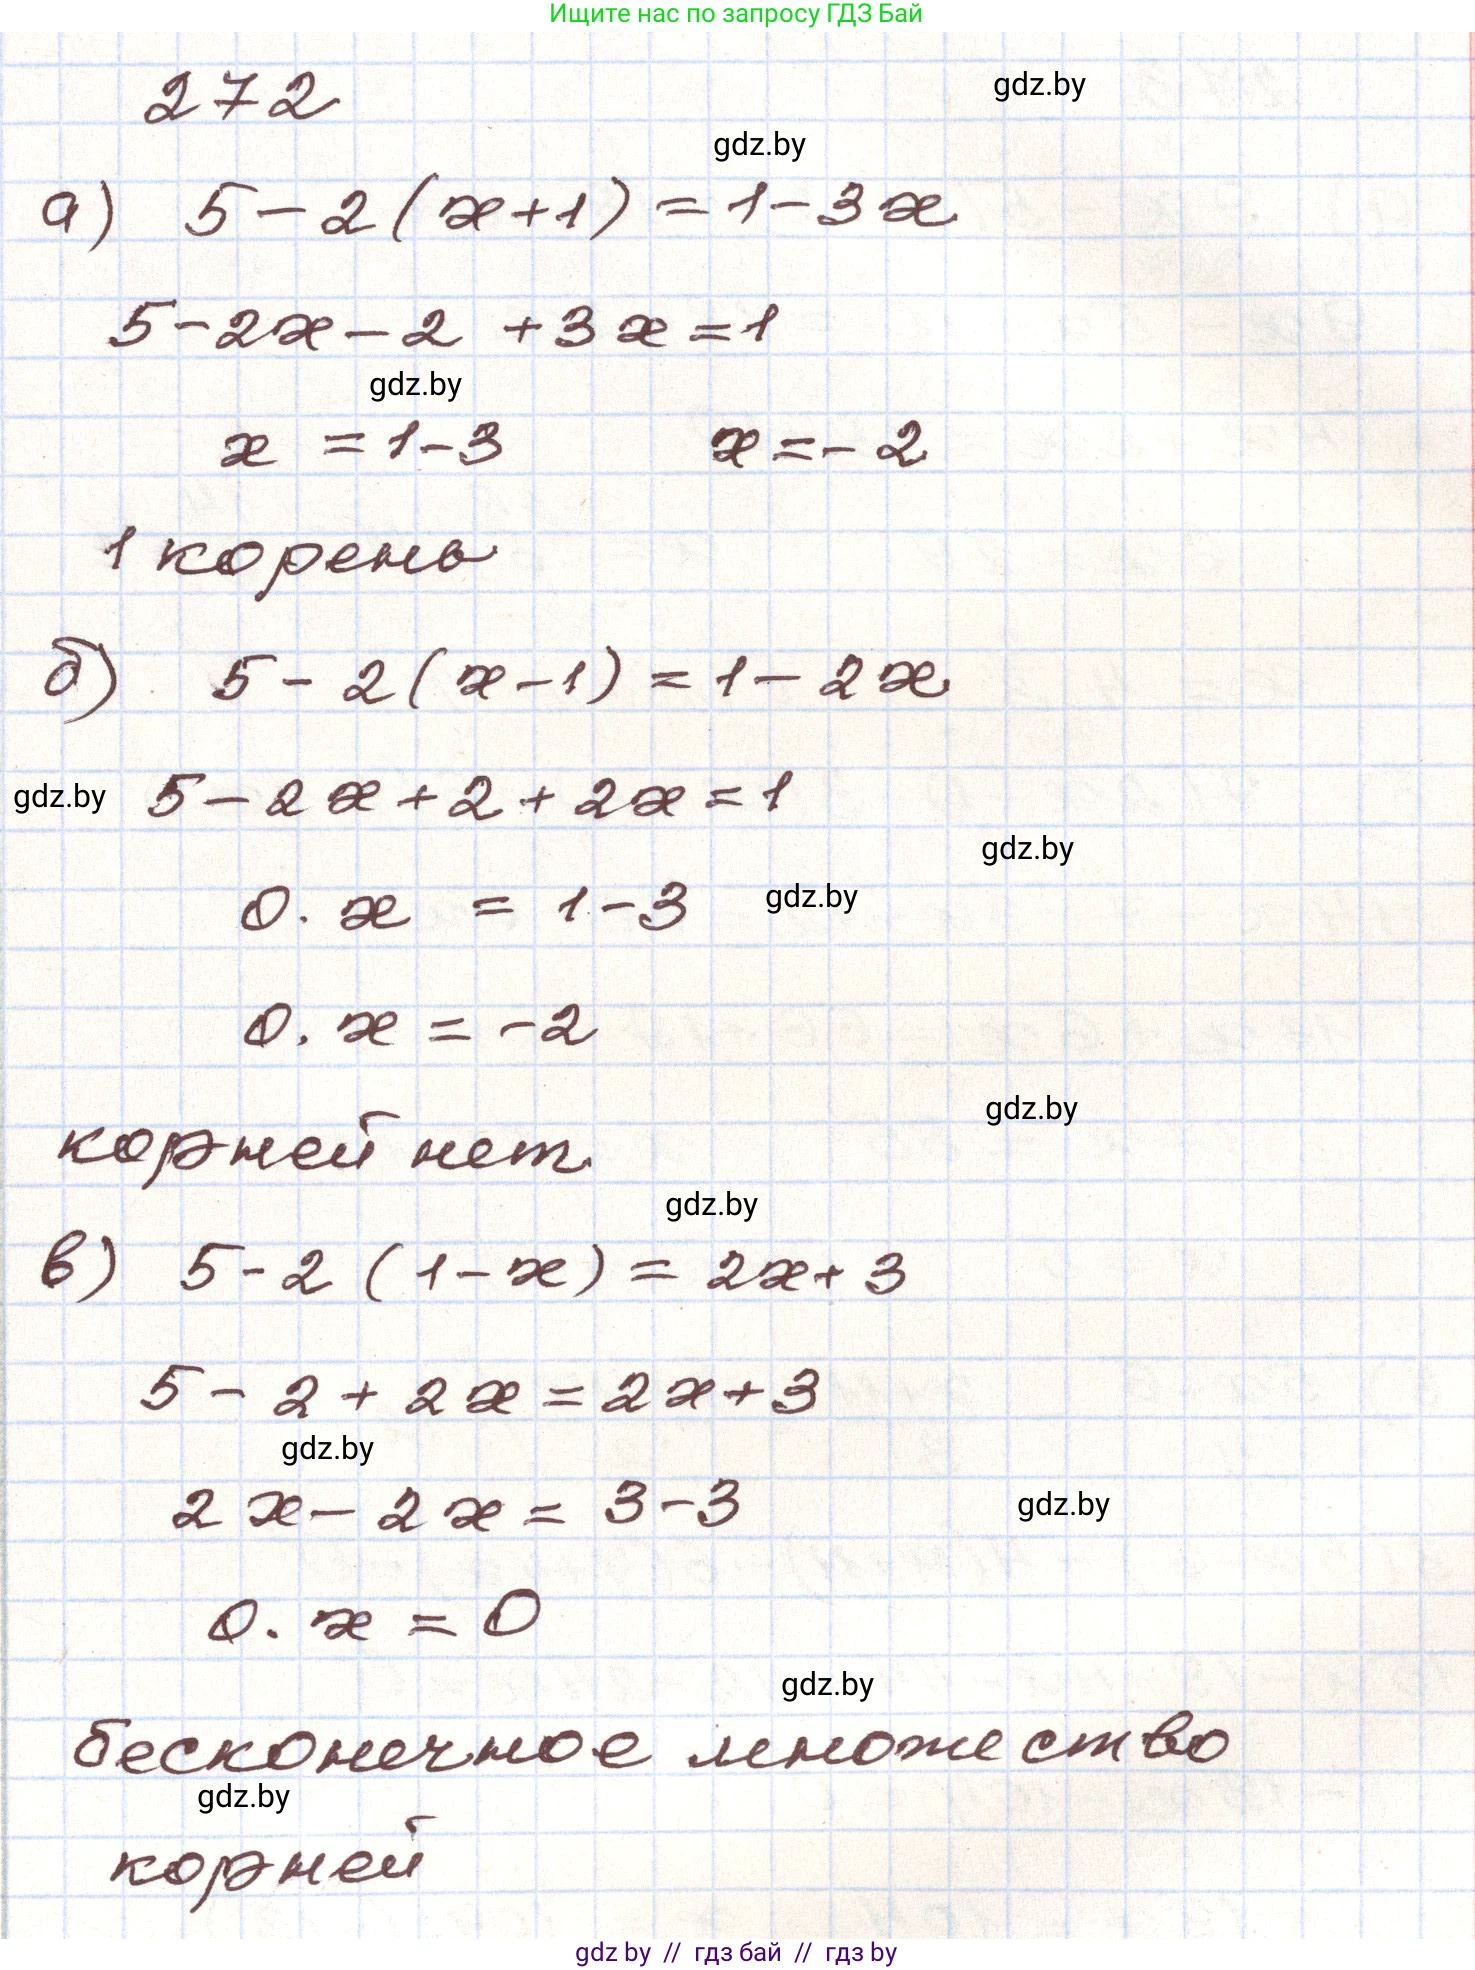 Ищите нас по запросу ГДЗ Бай
272
gdz.by
gdz.by
а) 5 - 2 ( x + 1 ) = 1 - 3 x
5 - 2x - 2 + 3x = 1
gdz.by
x = 1 - 3 x = - 2
1 корень
б) 5 - 2 ( x - 1 ) = 1 - 2x
gdz.by 5 - 2x + 2 + 2x = 1
gdz.by
0 . x = 1 - 3 gdz.by
0 . x = - 2
gdz.by
корней нет.
gdz.by
в) 5 - 2 ( 1 - x ) = 2x + 3
5 - 2 + 2x = 2x + 3
gdz.by
2x - 2x = 3 - 3 gdz.by
0 . x = 0
gdz.by
бесконечное множество
gdz.by
корней
gdz by // гдз бай // гдз by